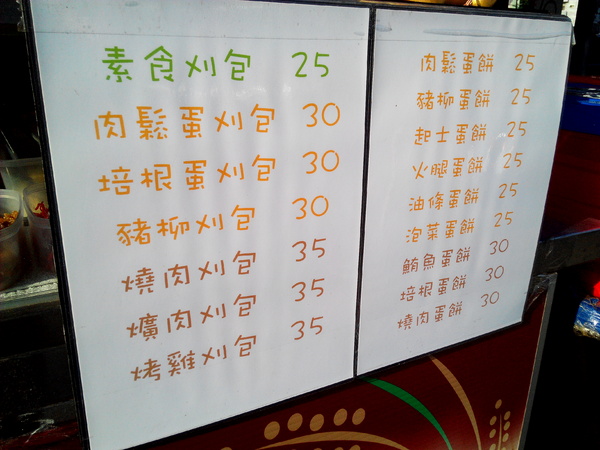 素食刈包 25
肉鬆蛋刈包 30
培根蛋刈包 30
豬柳刈包 30
燒肉刈包 35
爌肉刈包 35
烤雞刈包 35
肉鬆蛋餅 25
豬柳蛋餅 25
起士蛋餅 25
火腿蛋餅 25
油條蛋餅 25
泡菜蛋餅 25
鮪魚蛋餅 30
培根蛋餅 30
燒肉蛋餅 30